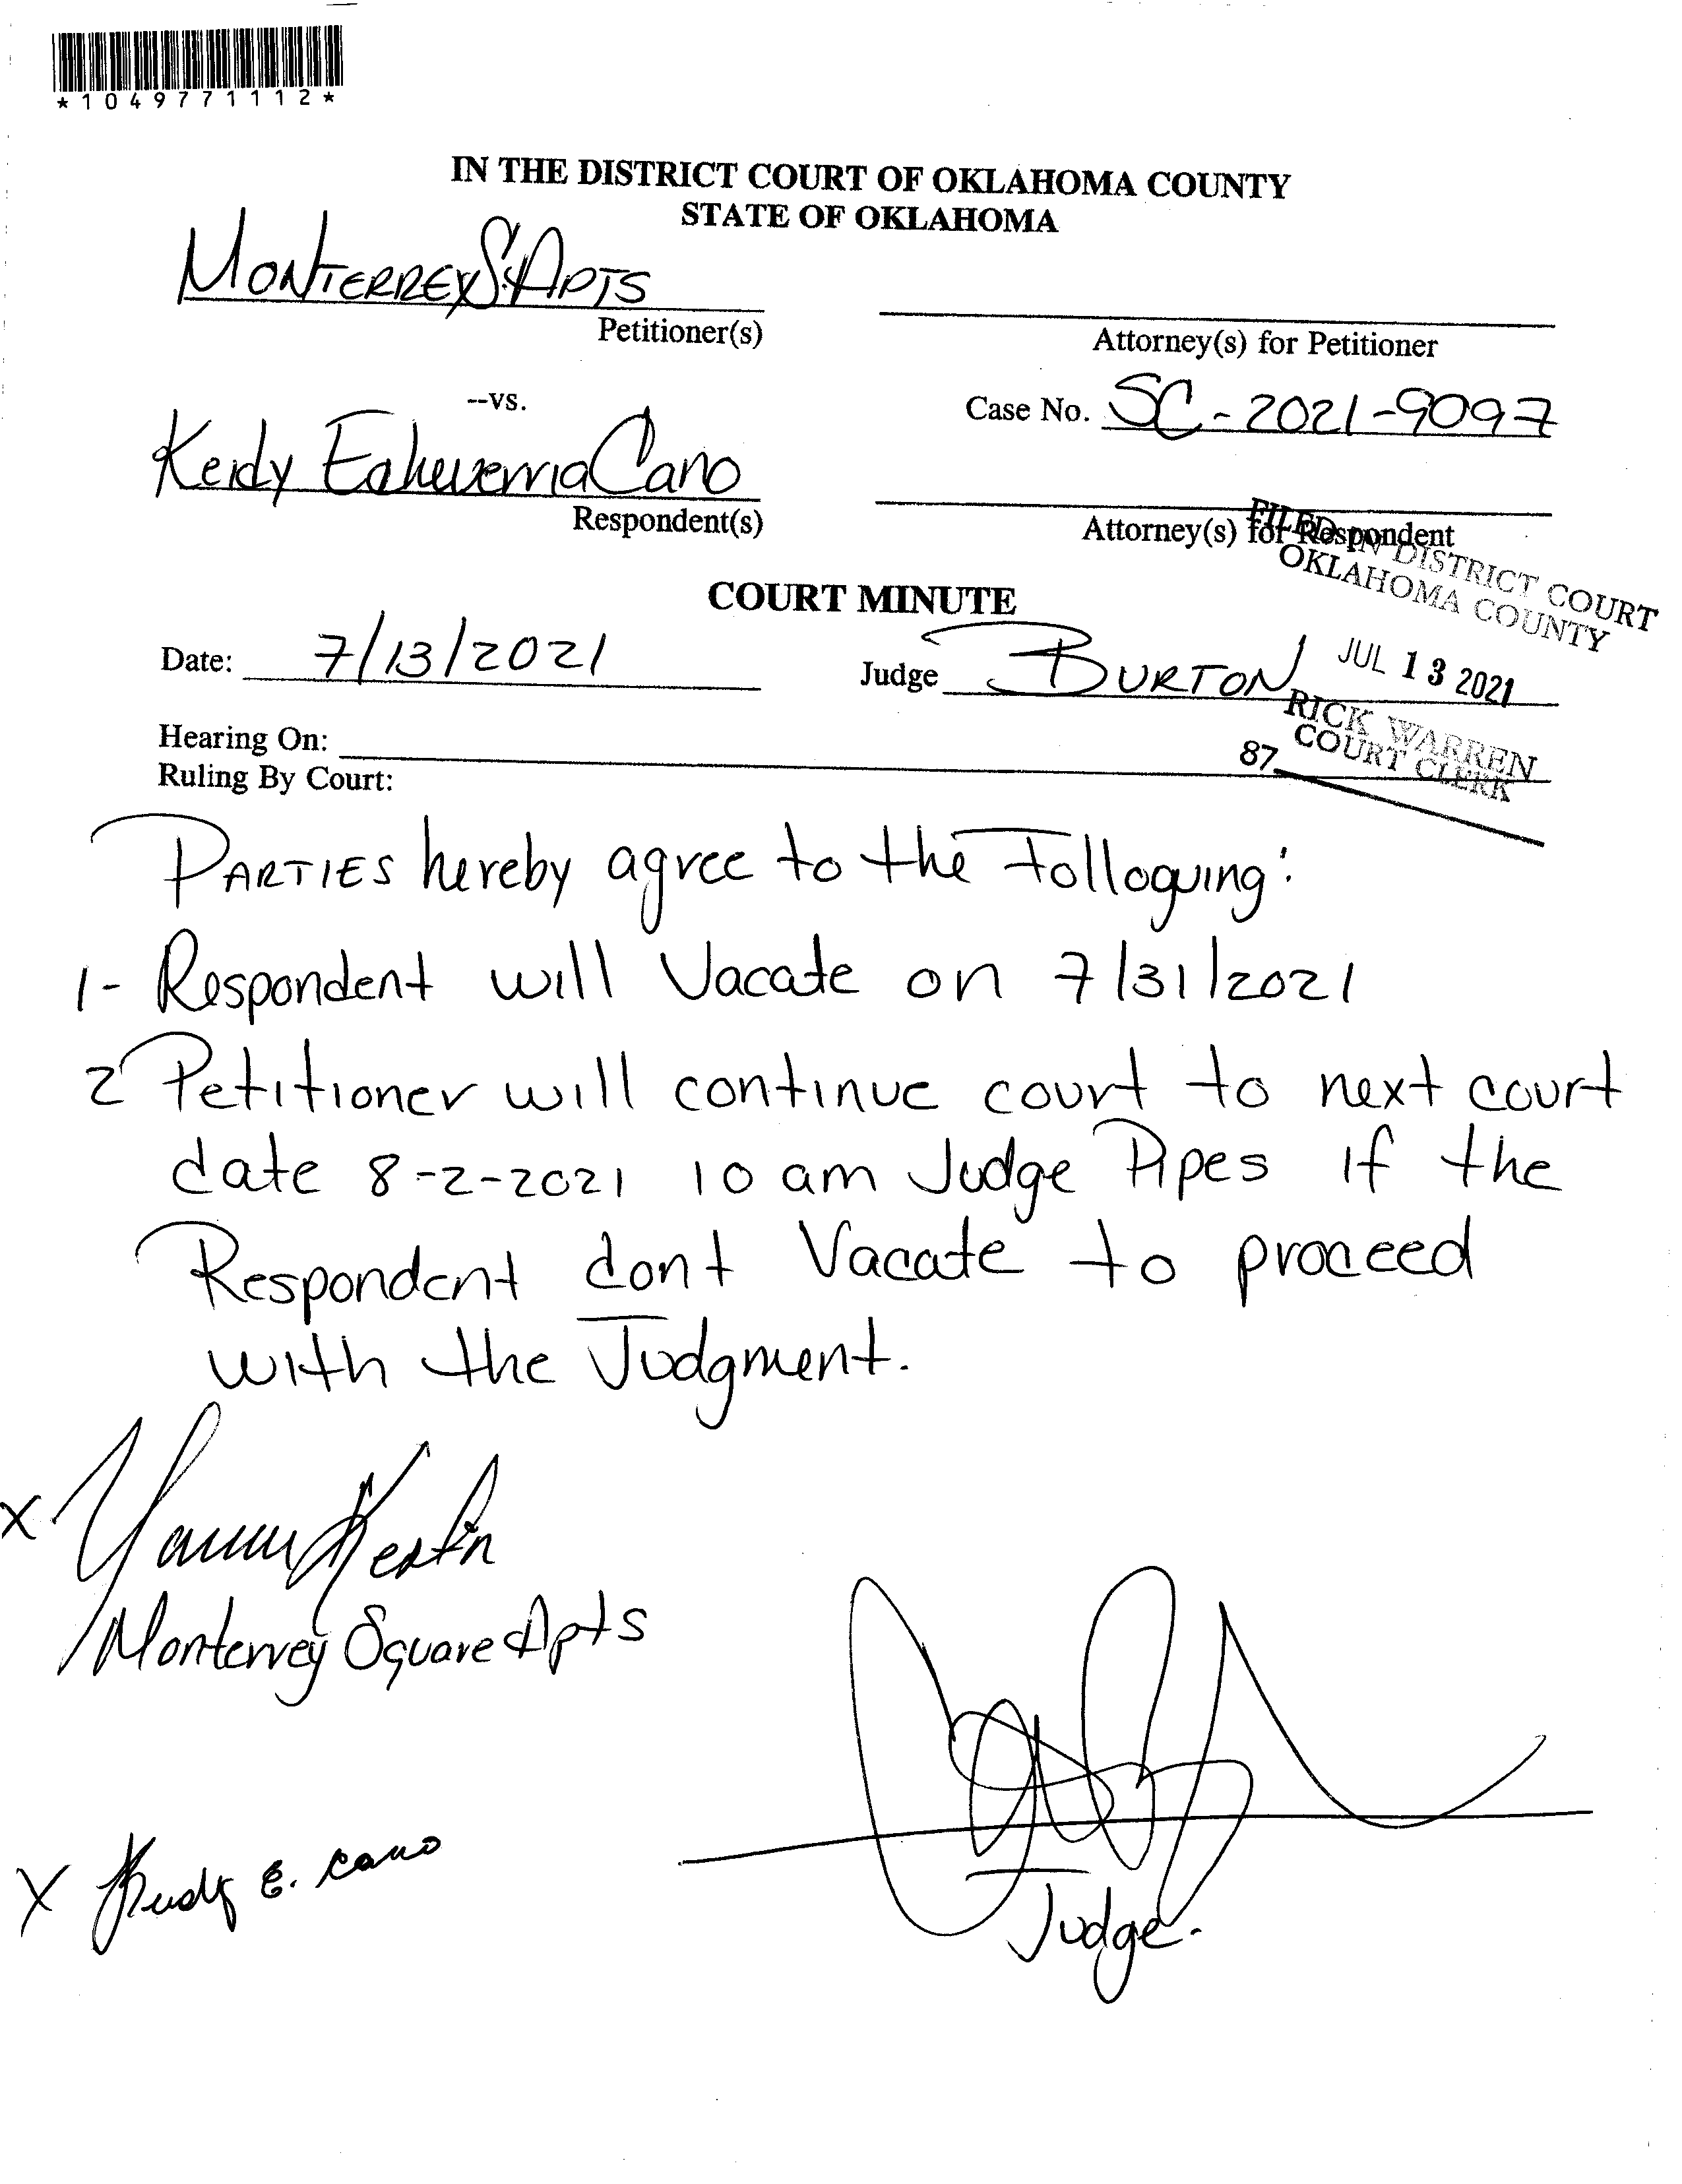 *1049771112*
IN THE DISTRICT COURT OF OKLAHOMA COUNTY
STATE OF OKLAHOMA
MONTERREY Sq APTS
Petitioner(s)
Attorney(s) for Petitioner
--vs.
Case No. SC-2021-9097
Keidy Echeverria Cano
Respondent(s)
Attorney(s) for Respondent
FILED IN DISTRICT COURT
OKLAHOMA COUNTY
COURT MINUTE
Date: 7/13/2021
Judge BURTON
JUL 13 2021
RICK WARREN
COURT CLERK
87
Hearing On:
Ruling By Court:
PARTIES hereby agree to the Folloguing:
1- Respondent will Vacate on 7/31/2021
2 Petitioner will continue court to next court
date 8-2-2021 10 am Judge Pipes if the
Respondent dont Vacate to proceed
with the Judgment.
X
Monterrey Square Apts
X E. Cano
Judge.